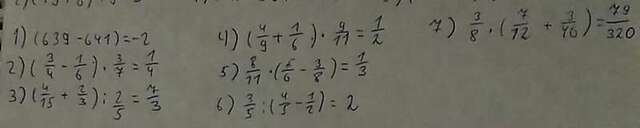 1) (639-641)=-2
2) (3/4 - 1/6) · 3/7 = 1/4
3) (4/15 + 2/3) : 2/5 = 7/3
4) (4/9 + 1/6) · 9/11 = 1/2
5) 8/11 · (5/6 - 3/8) = 1/3
6) 3/5 : (4/5 - 1/2) = 2
7) 3/8 · (7/12 + 3/40) = 79/320